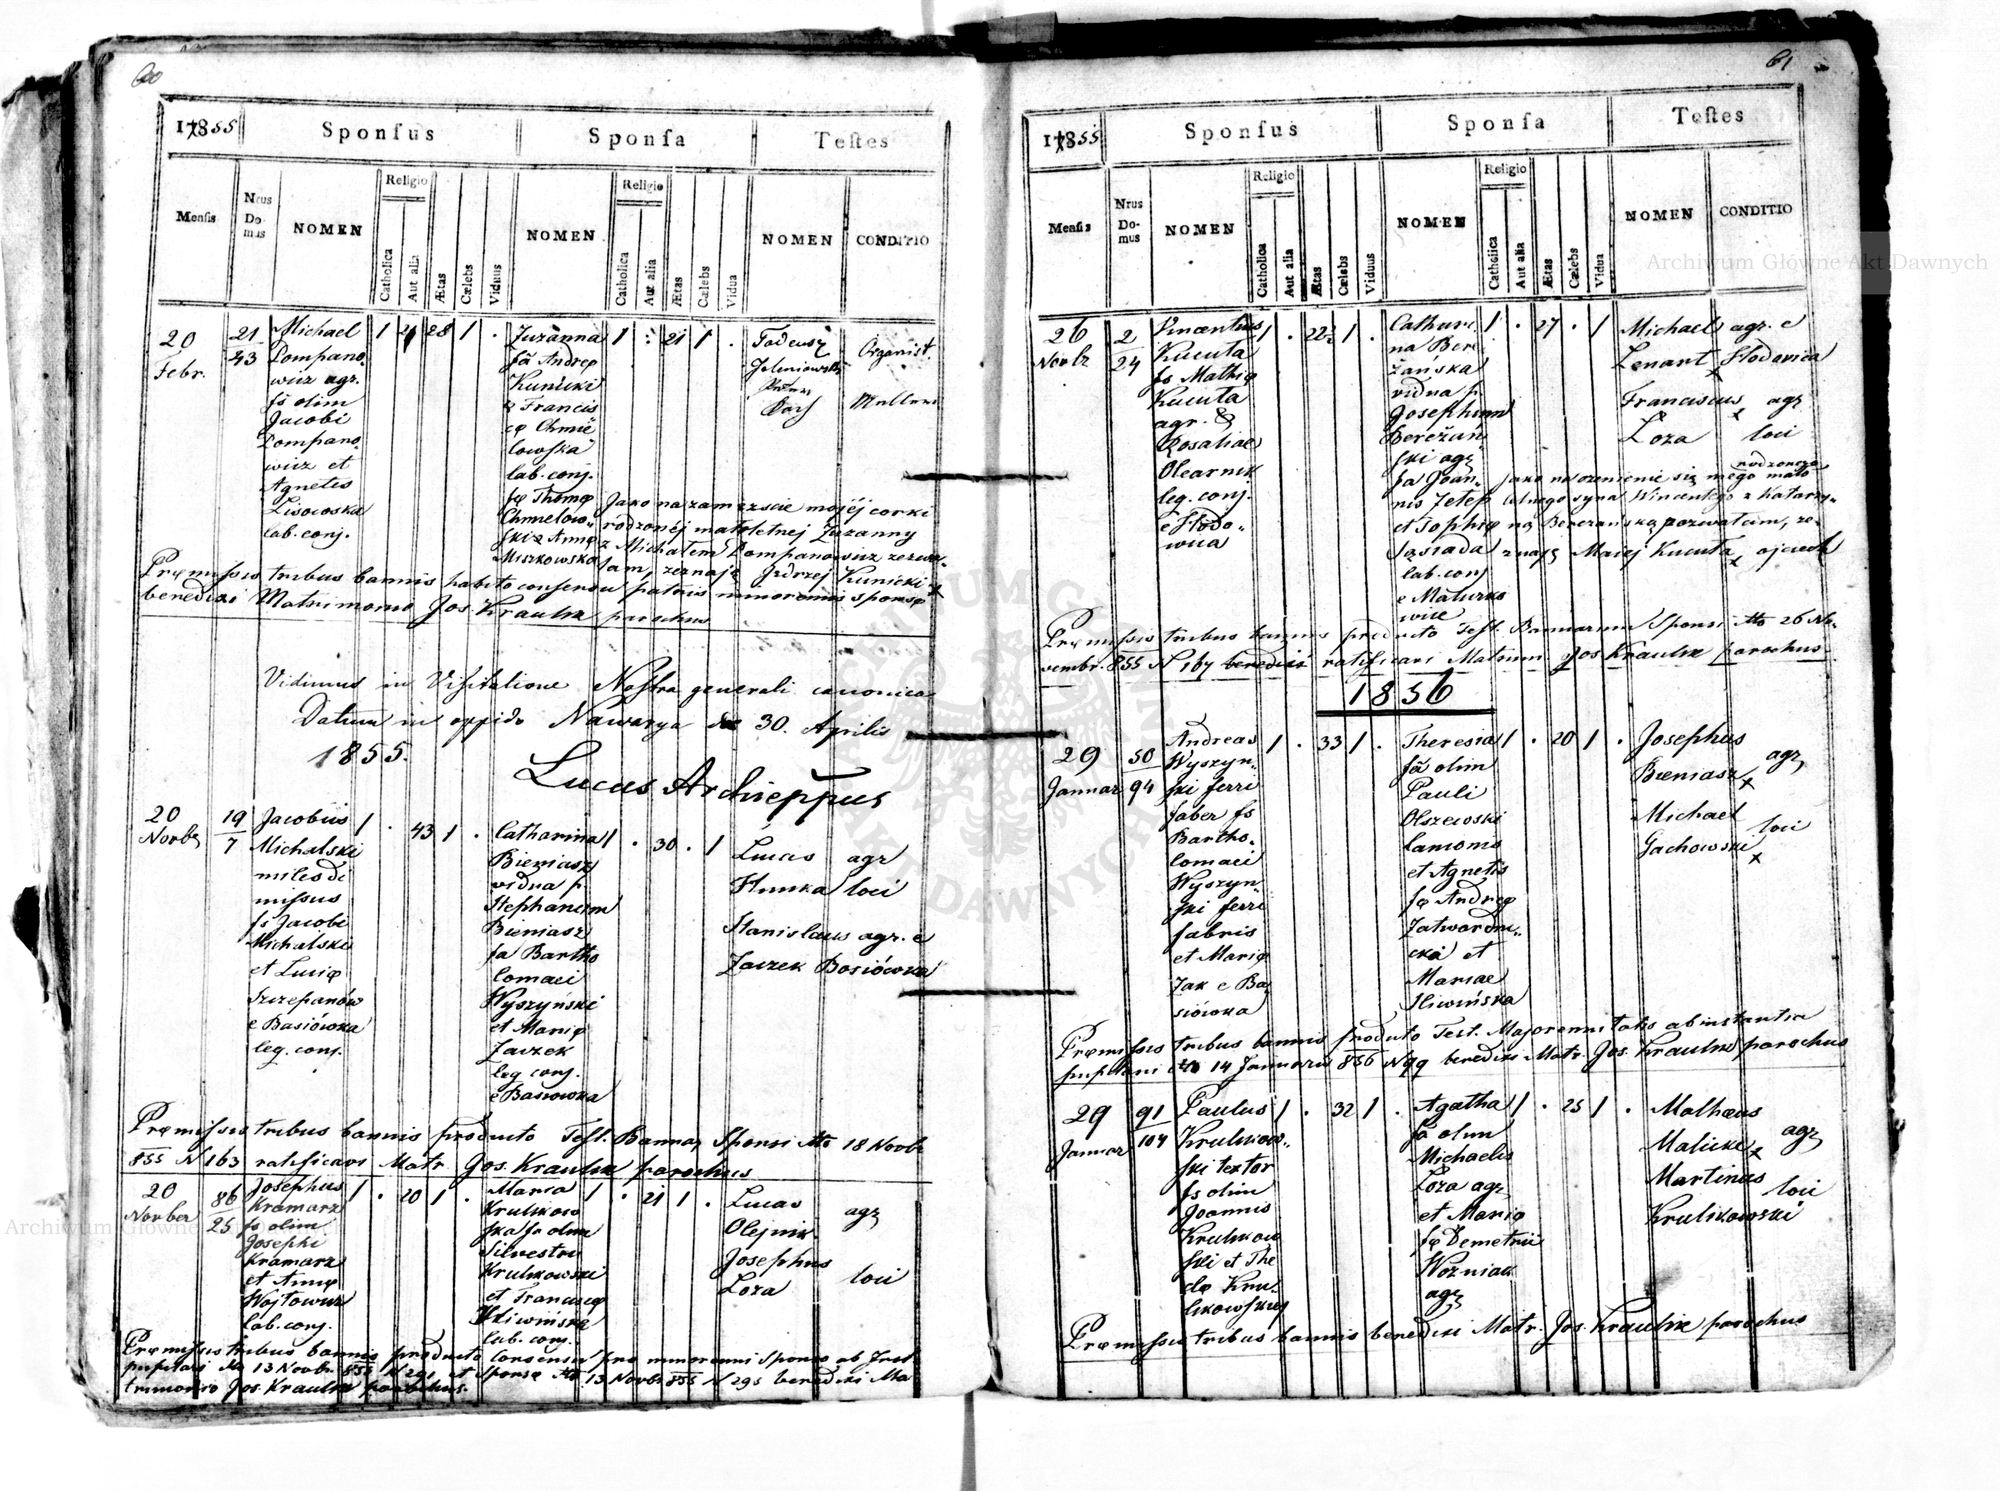 60
17855
Sponsus
Sponsa
Testes
Mensis
Nrus Domus
NOMEN
Religio
Catholica
Aut alia
Ætas
Cælebs
Viduus
NOMEN
Religio
Catholica
Aut alia
Ætas
Cælebs
Vidua
NOMEN
CONDITIO
20
Febr.
21
43
Michael
Pompano-
wicz agr.
fs olim
Jacobi
Pompano-
wicz et
Agnetis
Lisowska
lab. conj.
1
28
1
.
Zuzanna
fa Andreę
Kunicki
& Francis
cę Chmie
lowska
lab. conj.
fę Thomę
Chmielow-
ski & Annę
Miszkowska
1
21
1
.
Tadeusz
Organist.
Jako na zamęzscie mojéj corki
rodzonéj małoletnej Zuzanny
z Michałem Pompanowicz zezwa-
lam, zeznaję Jędrzej Kunicki x
Pręmissis tribus bannis habito consensu patris minorennis sponsę
benedixi Matrimonio Jos. Kraulik parochus
Vidimus in Visitatione Nostra generali canonica
Datum in oppido Nawarya 30. Aprilis
1855.
Lucas Archieppus
20
Novbr
19
7
Jacobus
Michalski
miles di
missus
fs Jacobi
Michalski
et Lucię
Szczepanów
e Basiówka
leg. conj.
1
.
43
1
.
Catharina
Bieniasz
vidua p.
Stephanum
Bieniasz
fa Bartho
lomaei
Wyszyński
et Marię
Zaczek
leg conj.
e Basiowka
1
.
30
.
1
Lucas agr
Hunka loci
Stanislaus agr. e
Zaczek Basiówka
Pręmissis tribus bannis producto Test. Bannar. Sponsi dto 18 Novbr
855 N 163 ratificavi Matr. Jos. Kraulik parochus
20
Novber
86
25
Josephus
Kramarz
fs olim
Josephi
Kramarz
et Annę
Wojtowicz
lab. conj.
1
.
20
1
.
Maria
Krulikow
ska fa olim
Silvestri
Krulikowski
et Franciscę
Sliwińska
lab. conj.
1
.
21
1
.
Lucas
Olejnik
agr
Josephus
Loza
loci
Pręmissis tribus bannis producto Consensu pro minorenni Sponso ab Inst.
pupilari dto 13 Novbr 855 N 291 et Sponsę dto 13 Novbr 855 N 295 benedixi Ma
trimonio Jos. Kraulik parochus.
61
17855
Sponsus
Sponsa
Testes
Mensis
Nrus Domus
NOMEN
Religio
Catholica
Aut alia
Ætas
Cælebs
Viduus
NOMEN
Religio
Catholica
Aut alia
Ætas
Cælebs
Vidua
NOMEN
CONDITIO
26
Novbr
2
24
Vincentius
Kucuta
fs Mathię
Kucuta
agr. &
Rosaliae
Olearnik
leg. conj.
e Hodo-
wica
1
.
22
1
.
Cathari
na Bere
żańska
vidua p.
Josephum
Bereżań
ski agr
fa Joan-
nis Zelep
et Sophię
Sąsiada
lab. conj
e Maturko
wice
1
.
27
.
1
Michael agr. e
Lenart x Hodovica
Franciscus x agr
Loza loci
Jako na ozenienie się mego rodzonego mało
letnego syna Wincentego z Katarzy-
ną Bereżańską pozwalam, ze-
znaję Maciej Kucuta x ojciech
Pręmissis tribus bannis producto Test. Bannorum Sponsi dto 26 No-
vembr. 855 N 167 benedixi ratificavi Matrim. Jos Kraulik parochus
1856
29
Januar
50
94
Andreas
Wyszyn-
ski ferri
faber fs
Bartho-
lomaei
Wyszyn-
ski ferri
fabris
et Marię
Żak e Ba
siówka
1
.
33
1
.
Theresia
fa olim
Pauli
Olszewski
lanionis
et Agnetis
fę Andreę
Zatwardni-
cki et
Mariae
Sliwińska
1
.
20
1
.
Josephus
Bieniasz x
agr
Michael
Gachowski x
loci
Pręmissis tribus bannis producto Test. Majorennitatis ab instantia
pupilari dto 14 Januarii 856 N 99 benedixi Matr. Jos. Kraulik parochus
29
Januar
91
104
Paulus
Krulikow-
ski textor
fs olim
Joannis
Krulikow
ski et The
clę Kru-
likowskej
1
.
32
1
.
Agatha
fa olim
Michaelis
Loza agr
et Marię
fę Demetrii
Wozniak
agr
1
.
25
1
.
Matheus
Malicki x
agr
Martinus
Krulikowski
loci
Pręmissis tribus bannis benedixi Matr. Jos. Kraulik parochus
Archiwum Główne Akt Dawnych